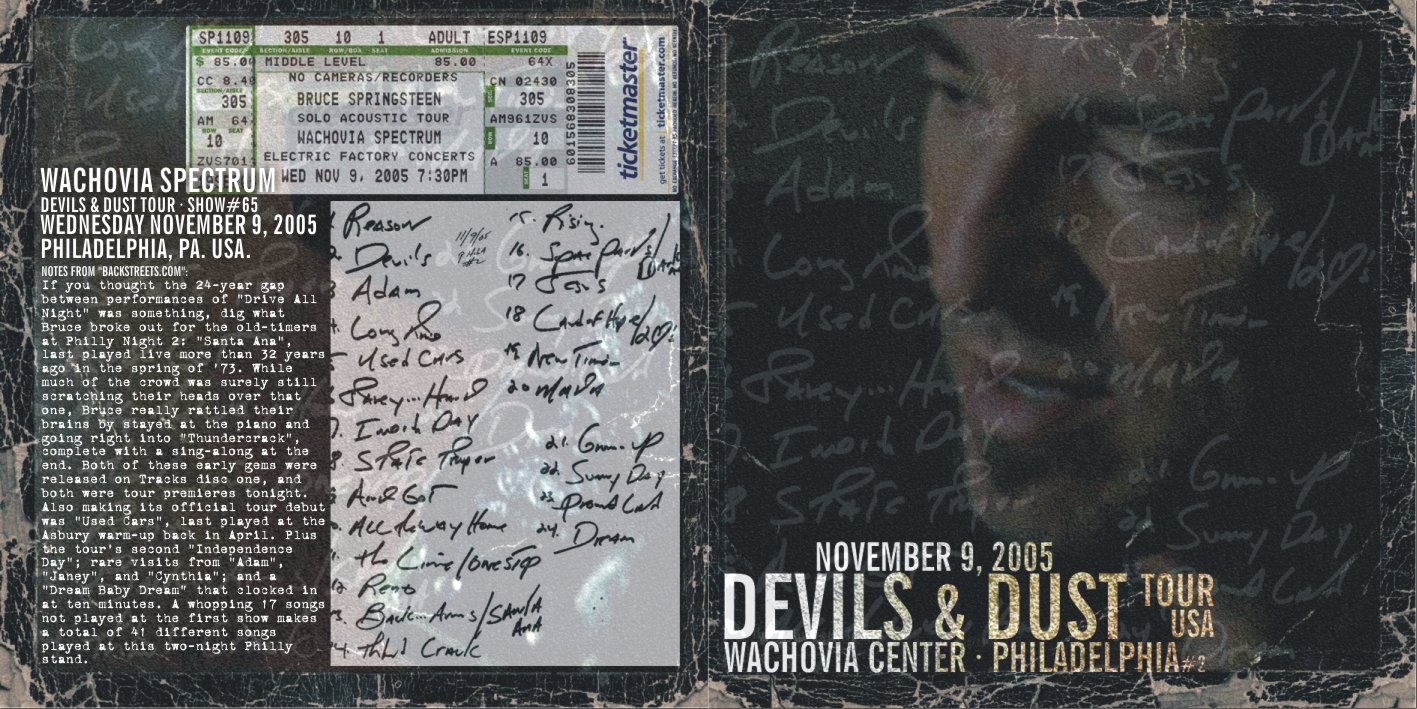 SP1109 305 10 1 ADULT ESP1109
EVENT CODE SECTION/AISLE ROW/BOX SEAT ADMISSION EVENT CODE
$ 85.00 MIDDLE LEVEL 85.00 64X
CC 8.40 NO CAMERAS/RECORDERS CN 02430
SECTION/AISLE
305 BRUCE SPRINGSTEEN 305
AM 64 SOLO ACOUSTIC TOUR AM961ZVS
ROW SEAT
10 WACHOVIA SPECTRUM 10
ZVS701 ELECTRIC FACTORY CONCERTS A 85.00
WED NOV 9, 2005 7:30PM 1
601568308305
ticketmaster
get tickets at ticketmaster.com
WACHOVIA SPECTRUM
DEVILS & DUST TOUR · SHOW#65
WEDNESDAY NOVEMBER 9, 2005
PHILADELPHIA, PA. USA.
NOTES FROM "BACKSTREETS.COM":
If you thought the 24-year gap
between performances of "Drive All
Night" was something, dig what
Bruce broke out for the old-timers
at Philly Night 2: "Santa Ana",
last played live more than 32 years
ago in the spring of '73. While
much of the crowd was surely still
scratching their heads over that
one, Bruce really rattled their
brains by stayed at the piano and
going right into "Thundercrack",
complete with a sing-along at the
end. Both of these early gems were
released on Tracks disc one, and
both were tour premieres tonight.
Also making its official tour debut
was "Used Cars", last played at the
Asbury warm-up back in April. Plus
the tour's second "Independence
Day"; rare visits from "Adam",
"Janey", and "Cynthia"; and a
"Dream Baby Dream" that clocked in
at ten minutes. A whopping 17 songs
not played at the first show makes
a total of 41 different songs
played at this two-night Philly
stand.
Reason
11/9/05
Devils
Adam
Long Time
Used Cars
Inend Day
8. State Trooper
And Got
All the way Home
the Line/one step
Reno
Back...Arms/SANTA
ANA
15. Rising
16. Spare parts/
17 Jesus
18
19 New Timer
20 MARIA
21. Grown-up
22. Sunny Day
23.
24. Dream
NOVEMBER 9, 2005
DEVILS & DUST TOUR
USA
WACHOVIA CENTER · PHILADELPHIA #2